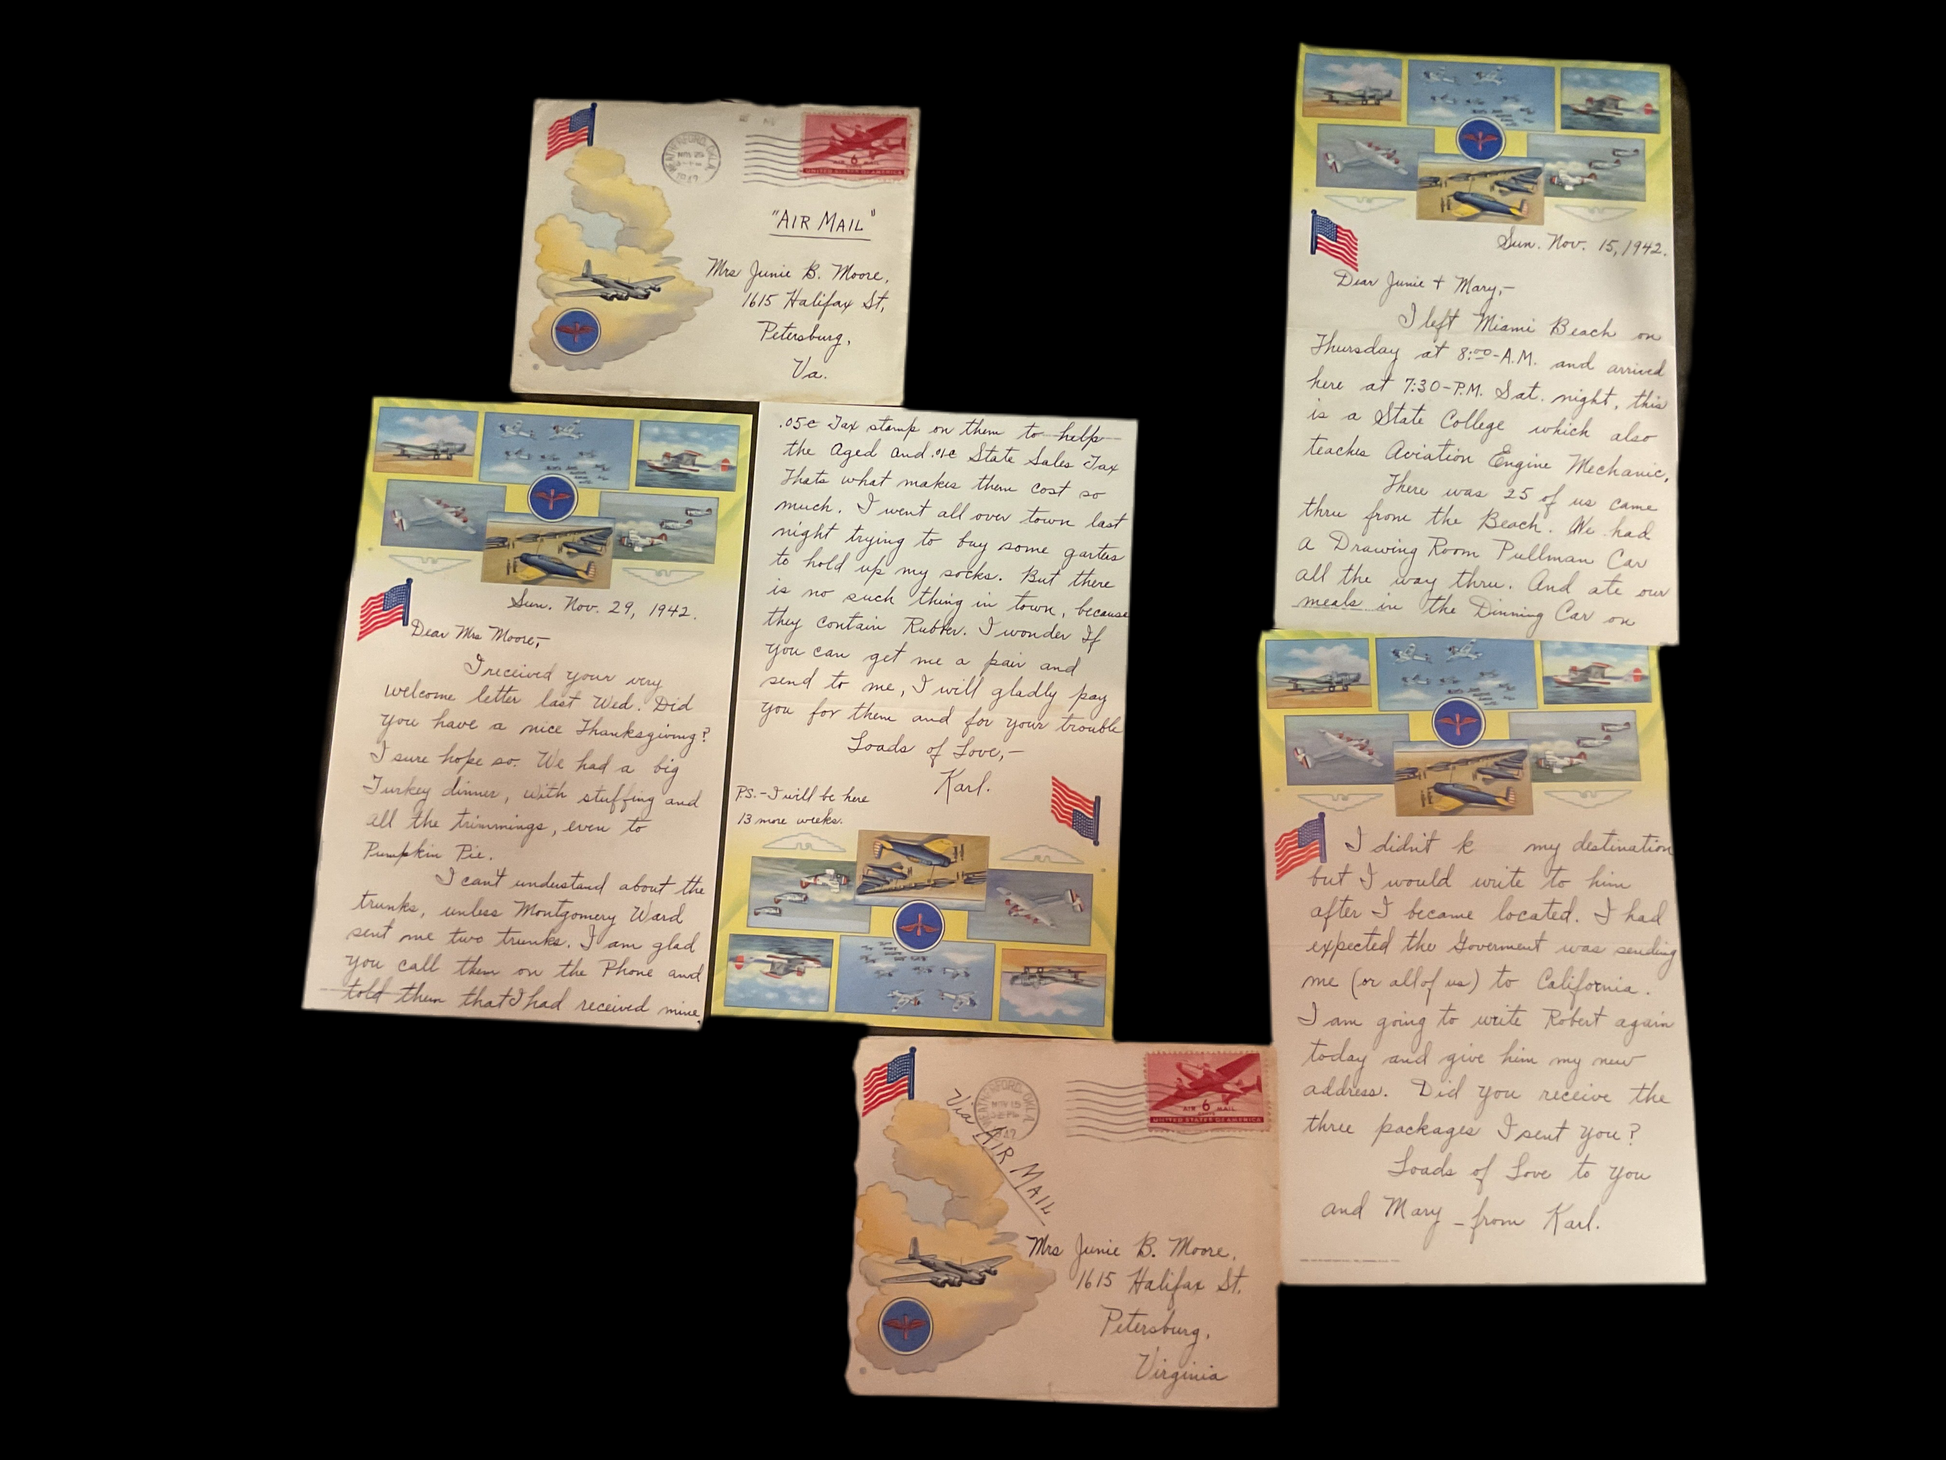 WEATHERFORD, OKLA.
NOV
1942
6
AIR MAIL
UNITED STATES OF AMERICA
"AIR MAIL"
Mrs Junie B. Moore,
1615 Halifax St,
Petersburg,
Va.
Sun. Nov. 29, 1942.
Dear Mrs Moore,-
I received your very
welcome letter last Wed. Did
you have a nice Thanksgiving?
I sure hope so. We had a big
Turkey dinner, with stuffing and
all the trimmings, even to
Pumpkin Pie.
I can't understand about the
trunks, unless Montgomery Ward
sent me two trunks. I am glad
you call them on the Phone and
told them that I had received mine.
.05c Tax stamp on them to help
the Aged and .01c State Sales Tax
Thats what makes them cost so
much. I went all over town last
night trying to buy some garters
to hold up my socks. But there
is no such thing in town, because
they contain Rubber. I wonder If
you can get me a pair and
send to me, I will gladly pay
you for them and for your trouble
Loads of Love,-
Karl.
PS.-I will be here
13 more weeks.
WEATHERFORD, OKLA.
NOV 15
1942
AIR 6 MAIL
CENTS
UNITED STATES OF AMERICA
Via AIR MAIL
Mrs Junie B. Moore,
1615 Halifax St.
Petersburg,
Virginia
Sun. Nov. 15, 1942.
Dear Junie + Mary,-
I left Miami Beach on
Thursday at 8:00-A.M. and arrived
here at 7:30-P.M. Sat. night, this
is a State College which also
teaches Aviation Engine Mechanic,
There was 25 of us came
thru from the Beach. We had
a Drawing Room Pullman Car
all the way thru. And ate our
meals in the Dinning Car on
I didn't k my destination
but I would write to him
after I became located. I had
expected the Goverment was sending
me (or all of us) to California.
I am going to write Robert again
today and give him my new
address. Did you receive the
three packages I sent you?
Loads of Love to you
and Mary - from Karl.